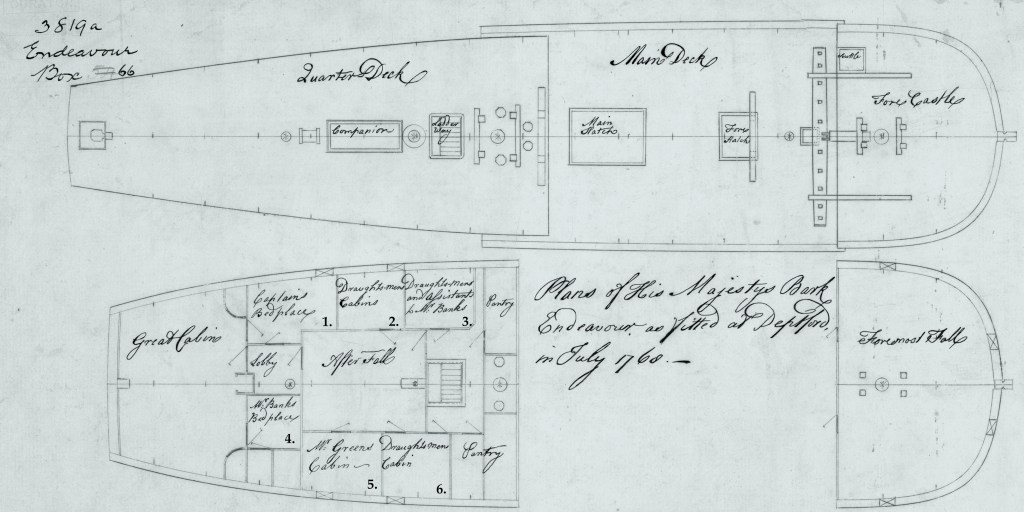 3819a
Endeavour
Box 66
Quarter Deck
Main Deck
Fore Castle
Companion
Ladder
Way
Main
Hatch
Fore
Hatch
Great Cabin
Captains
Bed place
1.
Draughtsmens
Cabins
2.
Draughtsmens
and Assistants
to Mr. Banks
3.
Pantry
Lobby
After Fall
Mr. Banks
Bed place
4.
Mr. Greens
Cabin
5.
Draughtsmens
Cabin
6.
Pantry
Plans of His Majestys Bark
Endeavour as fitted at Deptford,
in July 1768.—
Foremost Fall